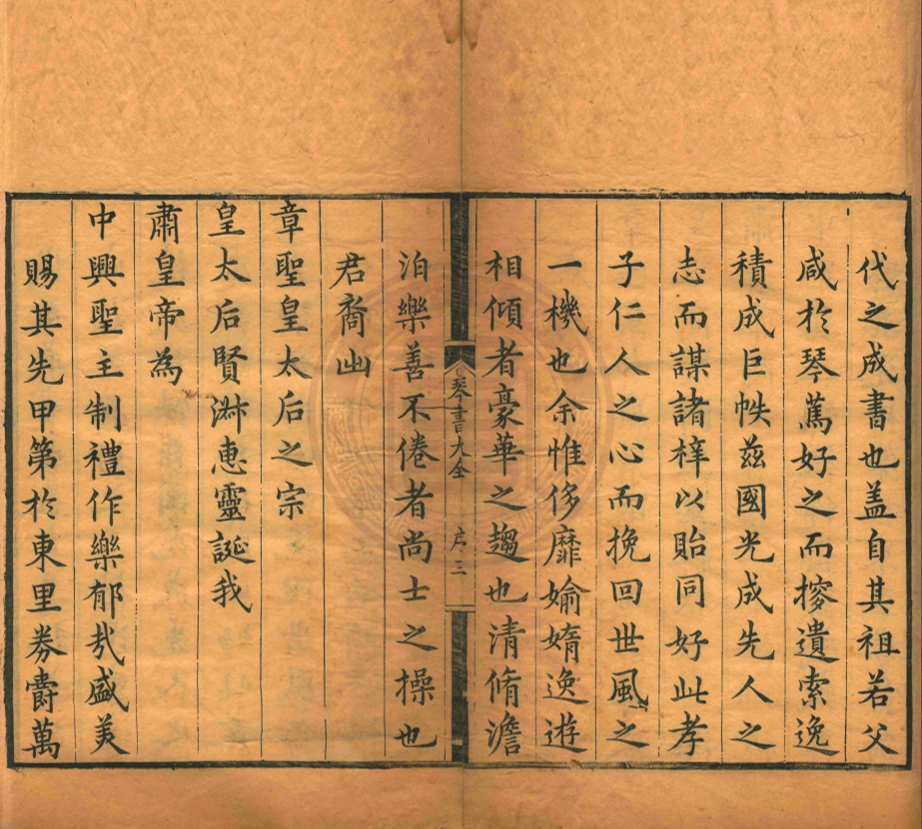 代之成書也盖自其祖若父
咸於琴篤好之而摉遺索逸
積成巨帙兹國光成先人之
志而謀諸梓以貽同好此孝
子仁人之心而挽回世風之
一機也余惟侈靡婾媠逸遊
相傾者豪華之趨也清脩澹
琴書大全 序 三
泊樂善不倦者尚士之操也
君裔出
章聖皇太后之宗
皇太后賢淋恵靈誕我
肅皇帝為
中興聖主制禮作樂郁㢤盛美
賜其先甲第於東里券爵萬